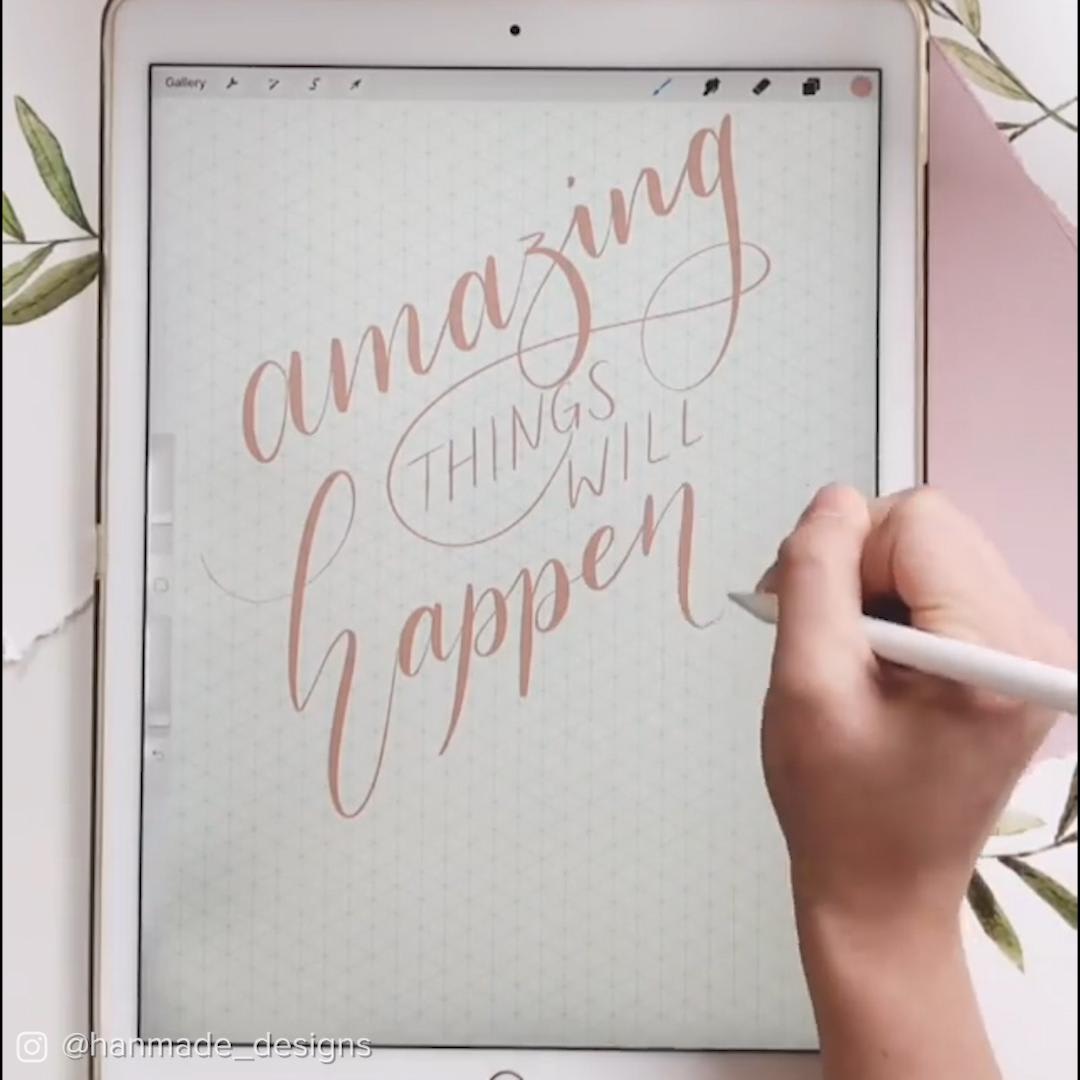 Gallery
amazing
THINGS
WILL
happen
@hanmade_designs